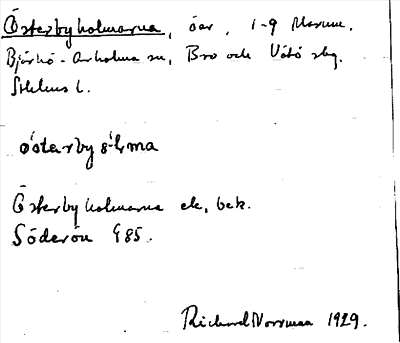 Österbyholmarna, öar, 1-9 Marum.
Björkö-Arholma sn, Bro och Vätö skg.
Sthlms l.
östərby s`l,ma
Österbyholmarna ek, bek.
Söderön G85.
Richard Norrman 1929.